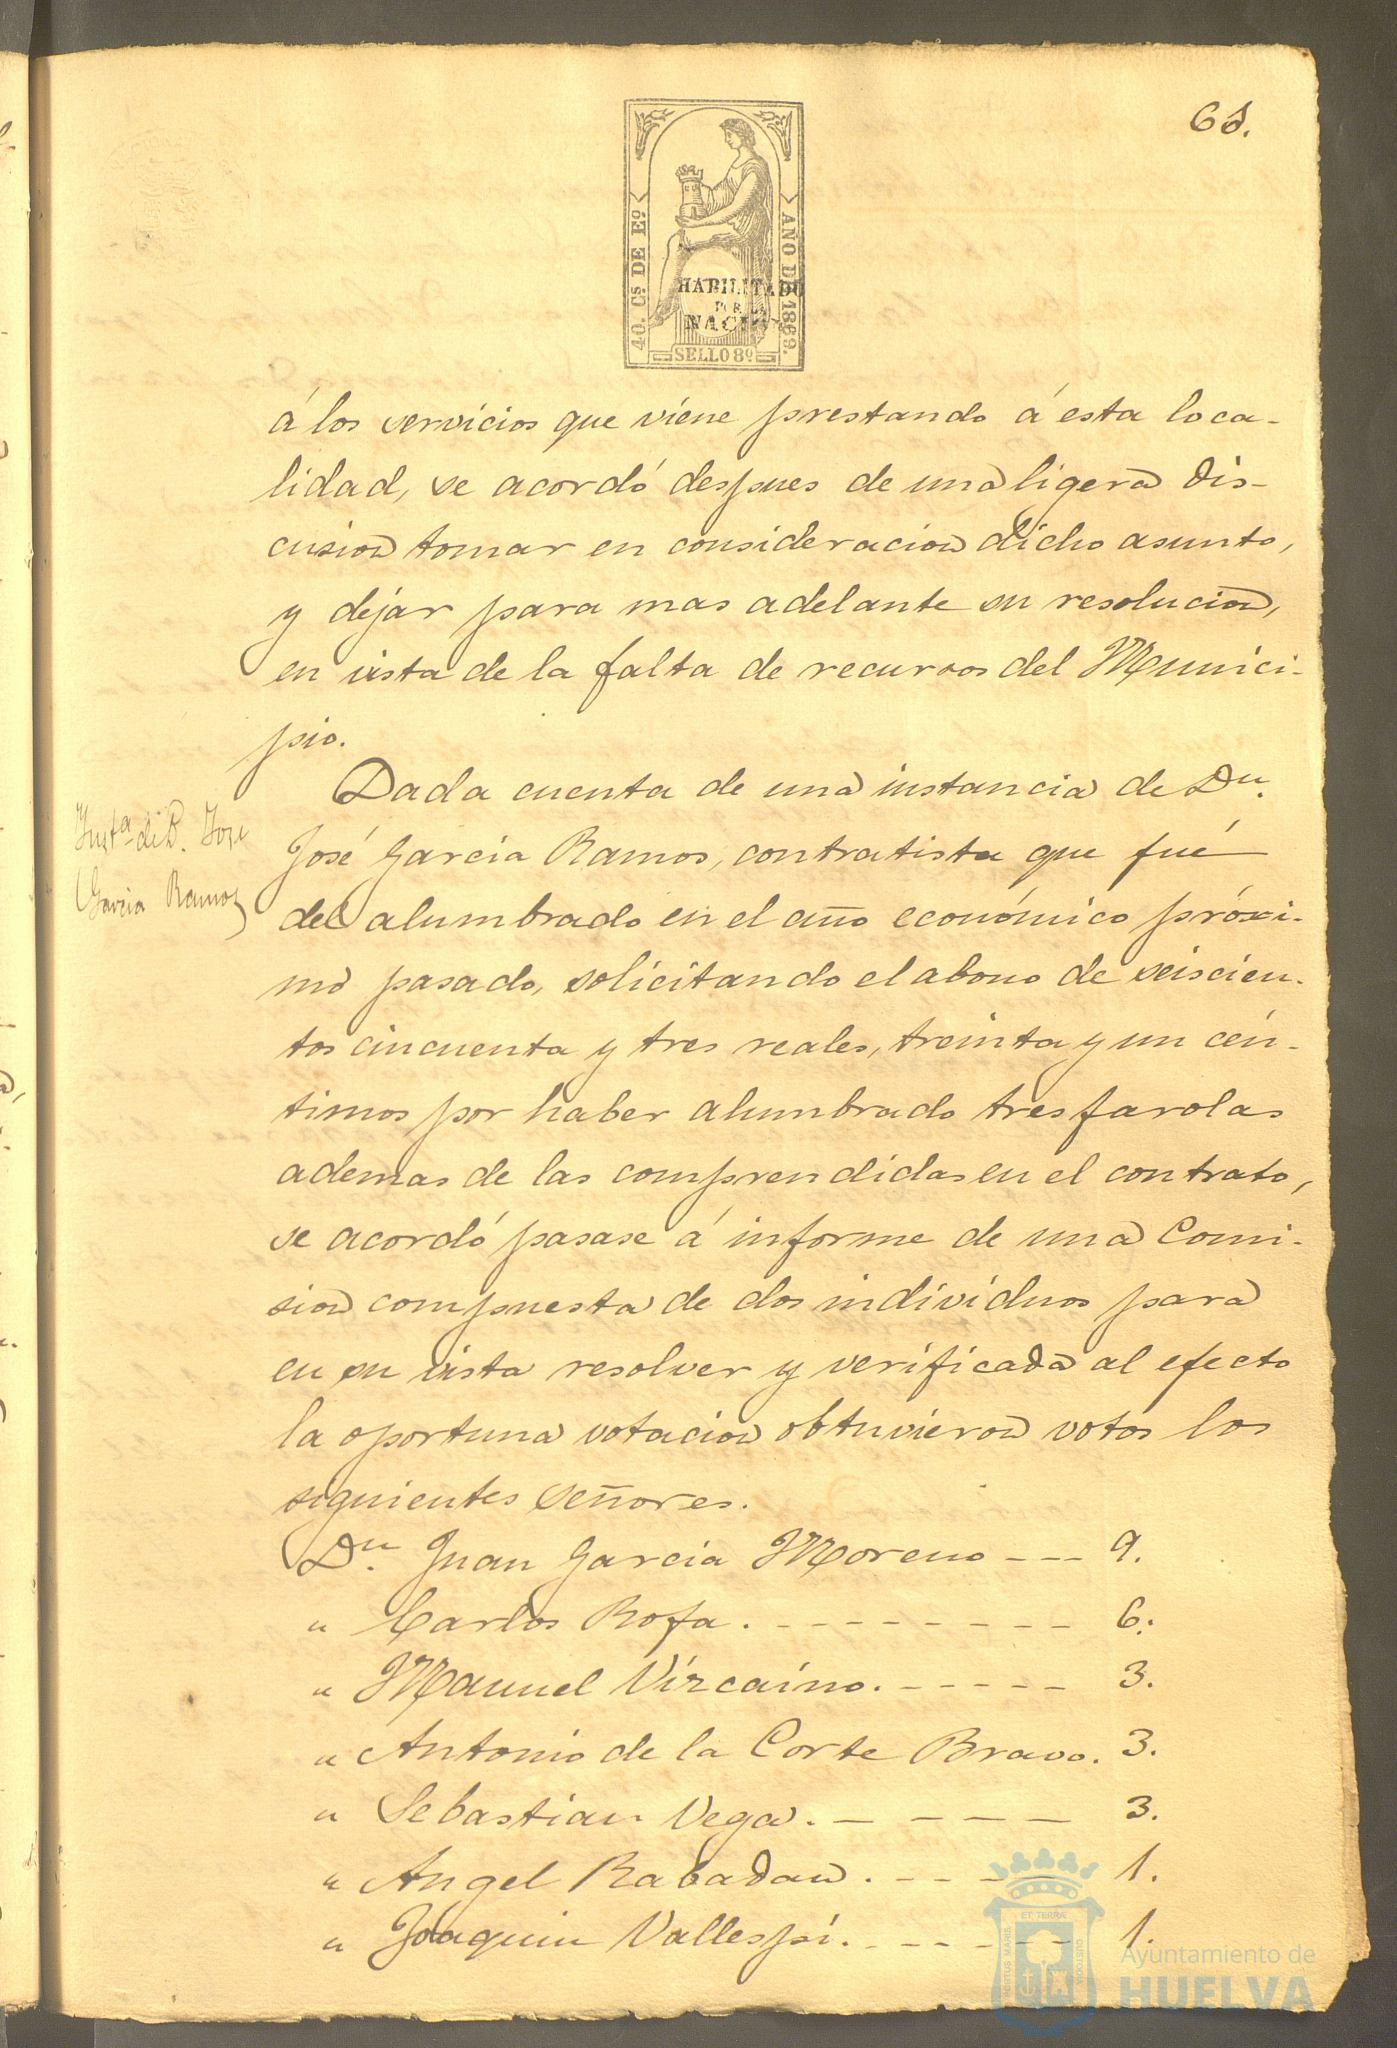 68.
40. Cs DE Eo
AÑO DE 1869.
HABILITADO
POR LA
NACION
SELLO 8º
á los servicios que viene prestando á esta loca-
lidad, se acordó despues de una ligera dis-
cusion tomar en consideracion dicho asunto,
y dejar para mas adelante su resolucion,
en vista de la falta de recursos del Munici-
pio.
Insta. de D. Jose
Garcia Ramos
Dada cuenta de una instancia de Dn.
José Garcia Ramos, contratista que fué
del alumbrado en el año económico próxi-
mo pasado, solicitando el abono de seiscien-
tos cincuenta y tres reales, treinta y un cén-
timos por haber alumbrado tres farolas
ademas de las comprendidas en el contrato,
se acordó pasase á informe de una Comi-
sion compuesta de dos individuos para
en su vista resolver y verificada al efecto
la oportuna votacion obtuvieron votos los
siguientes señores.
Dn. Juan Garcia Moreno --- 9.
" Carlos Rofa. -------- 6.
" Manuel Vizcaino. ----- 3.
" Antonio de la Corte Bravo. 3.
" Sebastian Vega. ----- 3.
" Angel Rabadan. ----- 1.
" Joaquin Vallespí. ----- 1.
PORTUS MARIS
ET TERRÆ
CUSTODIA
Ayuntamiento de
HUELVA